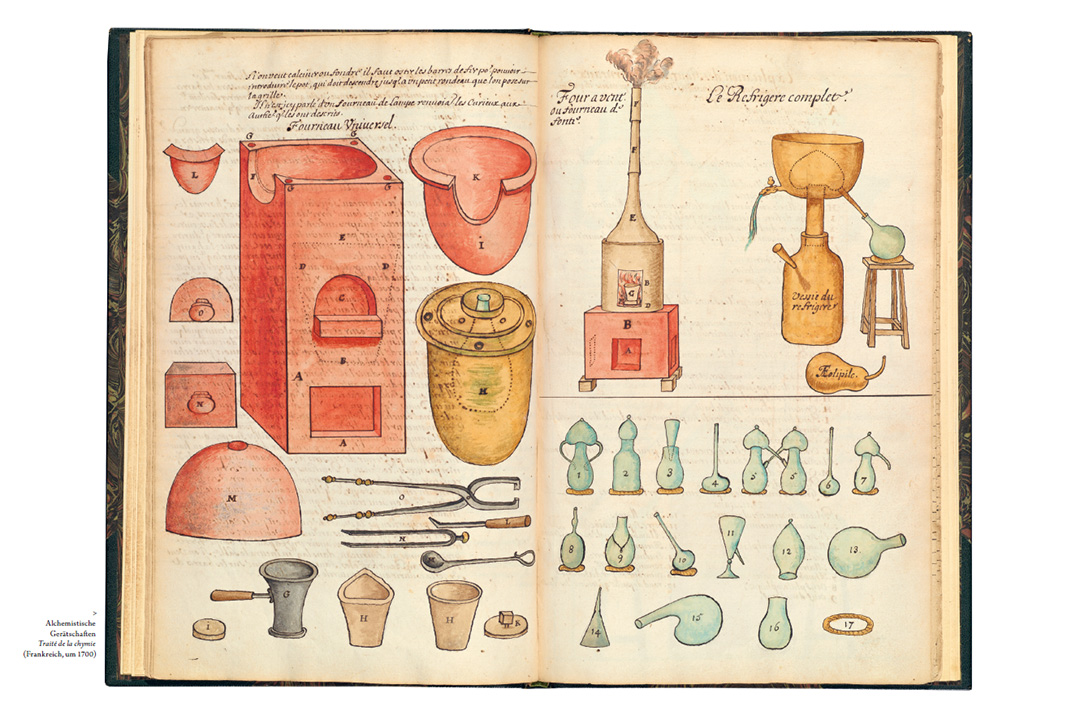 Si on veut calciner ou fondre il faut oster les barres de fer po.r pouvoir
introduire le pot, qui doit descendre jusq'a un petit rondeau que l'on pose sur
la grille.
parle d'un fourneau de lampe les Curieux aux
qui les ont descrits.
Fourneau Vniversel.
G
G
F
G
G
L
E
D
D
C
O
B
A
N
A
M
K
I
H
O
P
N
M
G
I
H
H
K
Four a vent
ou fourneau de
fonte.
F
E
B
G
D
B
A
Le Refrigere complet.
Vessie du
refrigere
Æolipile.
1
2
3
4
5
5
6
7
8
9
10
11
12
13
14
15
16
17
>
Alchemistische
Gerätschaften
Traité de la chymie
(Frankreich, um 1700)